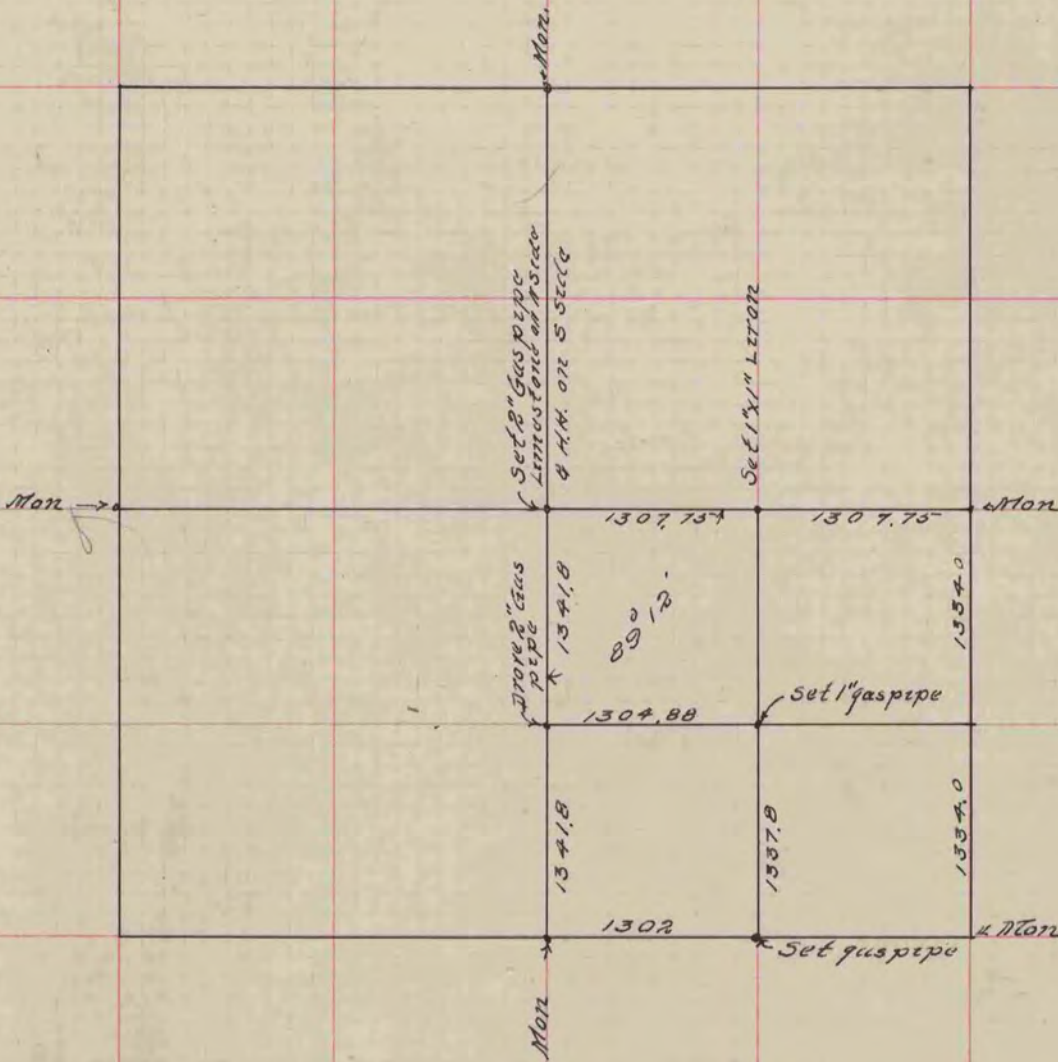 Mon.
Set 2" Gas pipe
Limestone on N Side
& H.H. on S Side
Set 1"x1" Iron
Mon
1307.75
1307.75
Mon
Drove 2" Gas
pipe
1341.8
89° 12'
1334.0
1304.88
Set 1" gas pipe
1341.8
1337.8
1334.0
1302
Mon
Set gas pipe
Mon